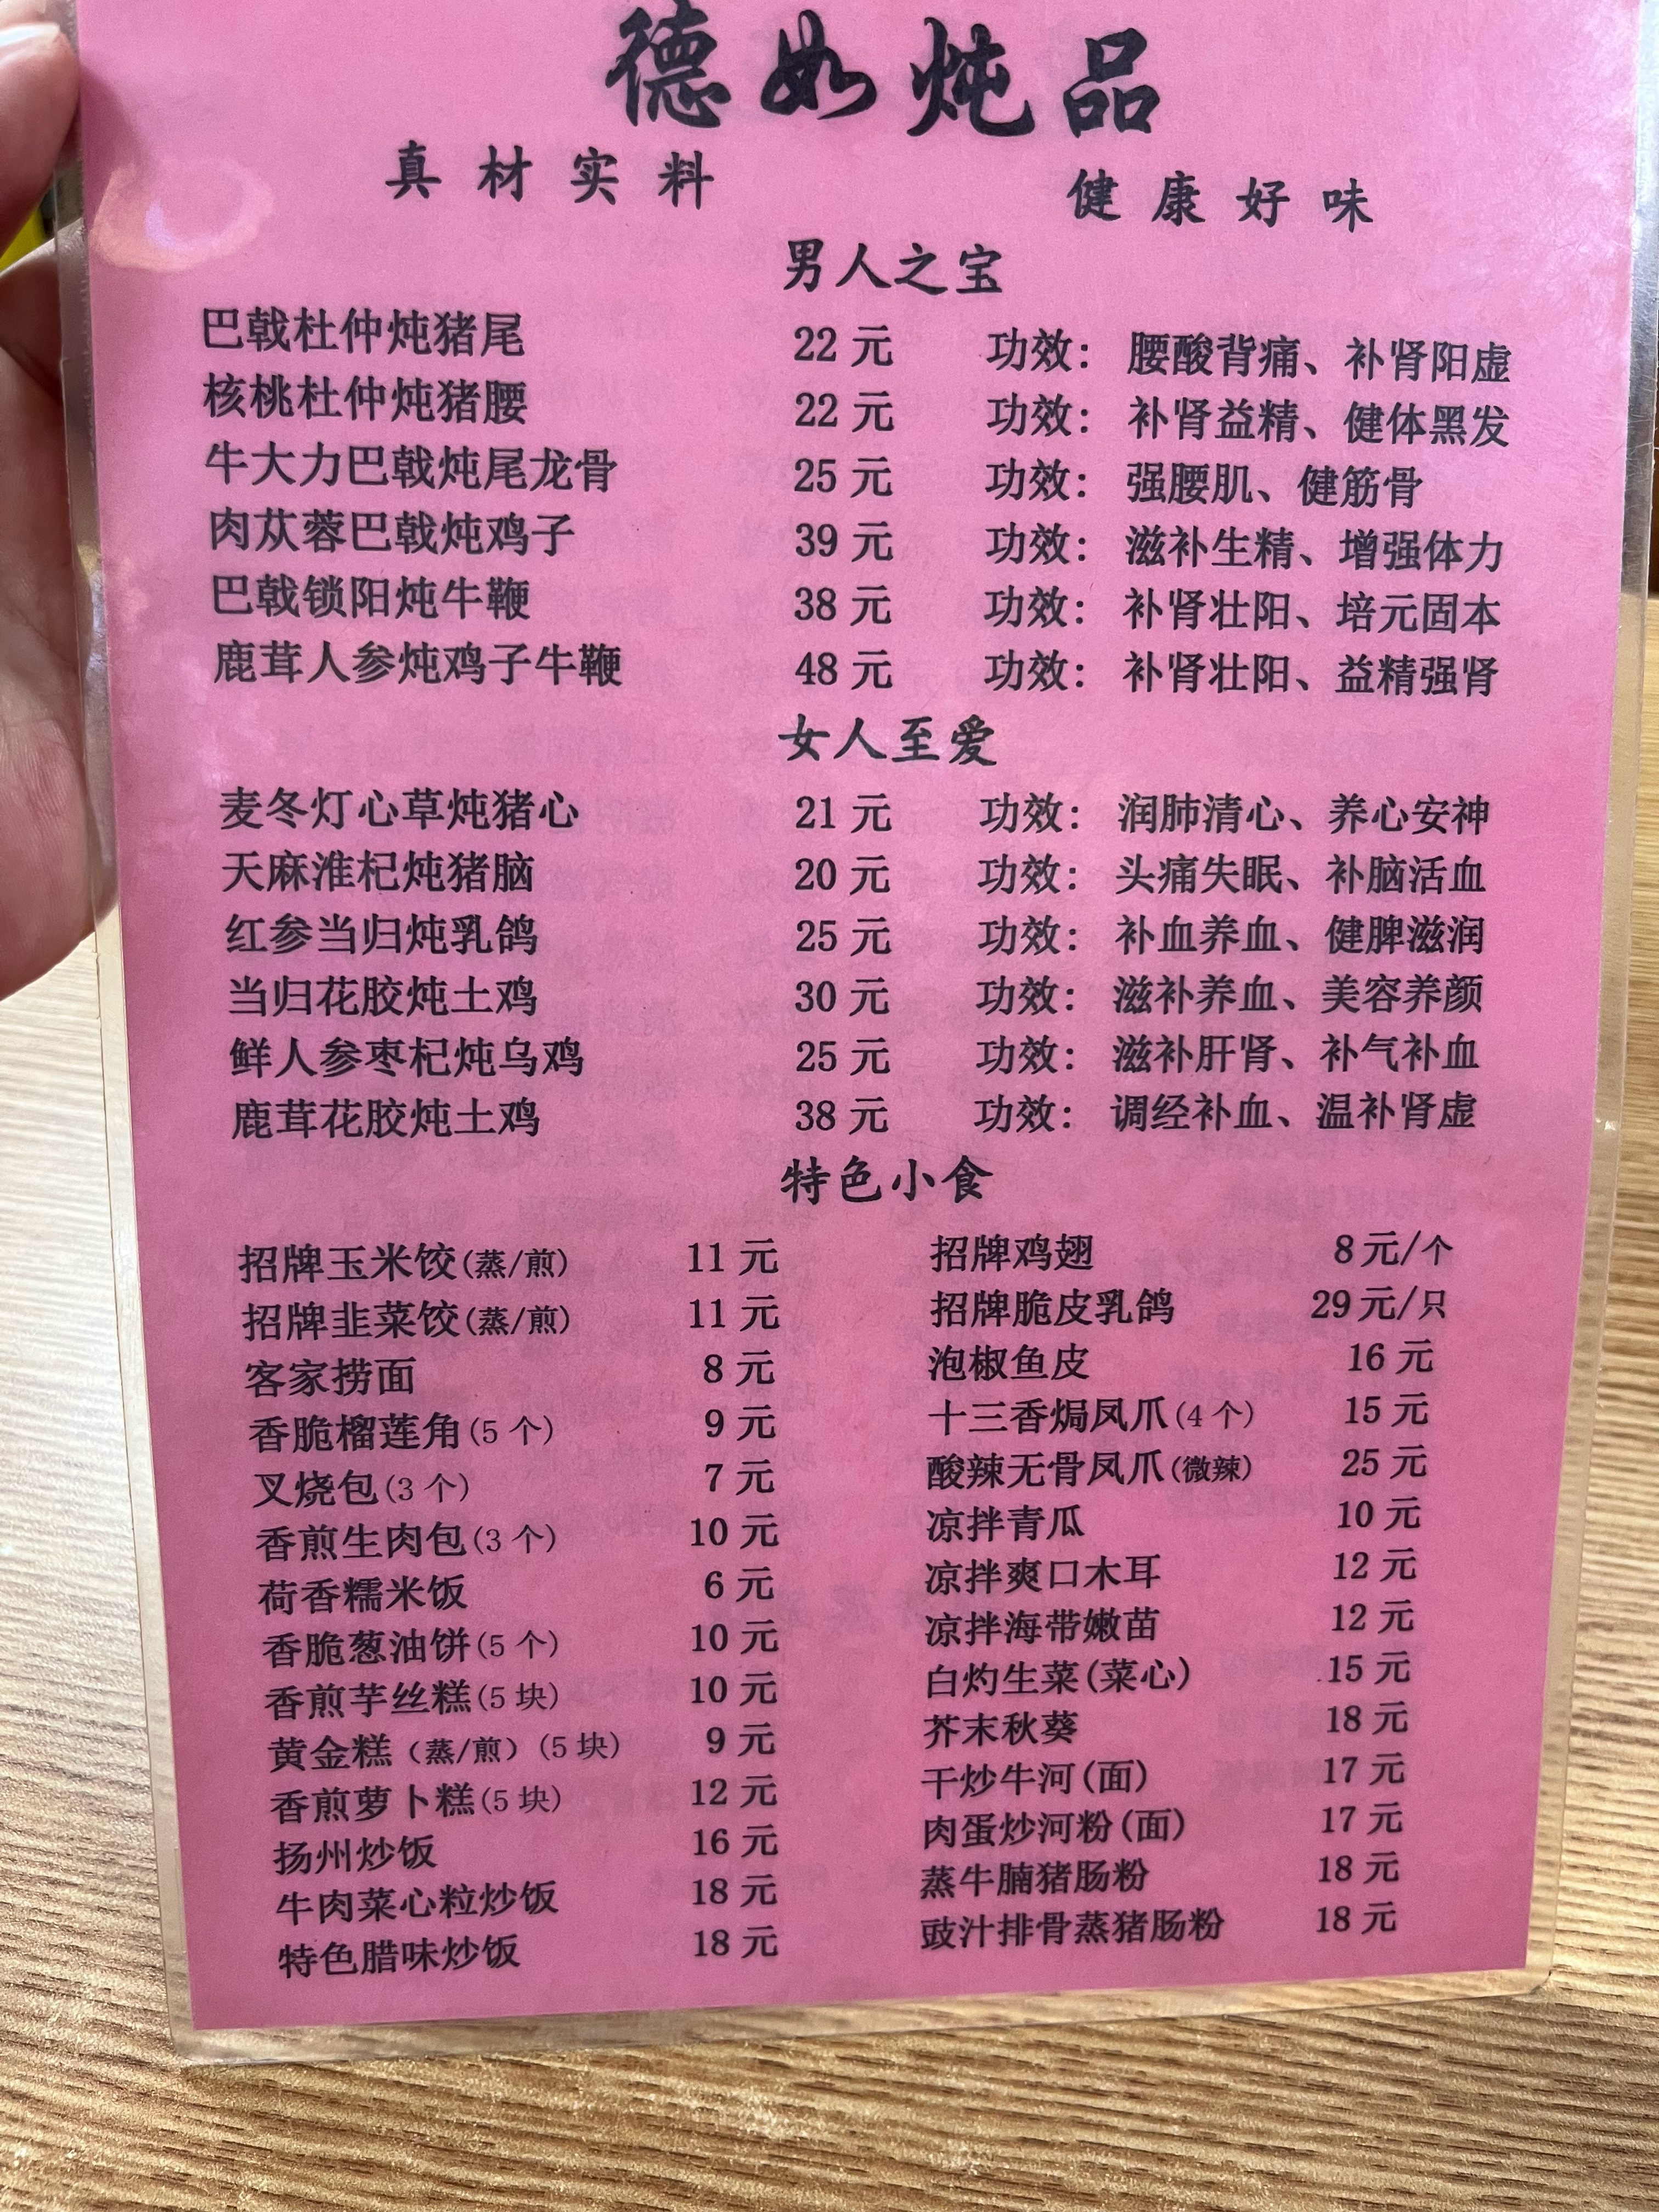 德如炖品
真材实料 健康好味
男人之宝
巴戟杜仲炖猪尾 22元 功效：腰酸背痛、补肾阳虚
核桃杜仲炖猪腰 22元 功效：补肾益精、健体黑发
牛大力巴戟炖尾龙骨 25元 功效：强腰肌、健筋骨
肉苁蓉巴戟炖鸡子 39元 功效：滋补生精、增强体力
巴戟锁阳炖牛鞭 38元 功效：补肾壮阳、培元固本
鹿茸人参炖鸡子牛鞭 48元 功效：补肾壮阳、益精强肾
女人至爱
麦冬灯心草炖猪心 21元 功效：润肺清心、养心安神
天麻淮杞炖猪脑 20元 功效：头痛失眠、补脑活血
红参当归炖乳鸽 25元 功效：补血养血、健脾滋润
当归花胶炖土鸡 30元 功效：滋补养血、美容养颜
鲜人参枣杞炖乌鸡 25元 功效：滋补肝肾、补气补血
鹿茸花胶炖土鸡 38元 功效：调经补血、温补肾虚
特色小食
招牌玉米饺(蒸/煎) 11元 招牌鸡翅 8元/个
招牌韭菜饺(蒸/煎) 11元 招牌脆皮乳鸽 29元/只
客家捞面 8元 泡椒鱼皮 16元
香脆榴莲角(5个) 9元 十三香焗凤爪(4个) 15元
叉烧包(3个) 7元 酸辣无骨凤爪(微辣) 25元
香煎生肉包(3个) 10元 凉拌青瓜 10元
荷香糯米饭 6元 凉拌爽口木耳 12元
香脆葱油饼(5个) 10元 凉拌海带嫩苗 12元
香煎芋丝糕(5块) 10元 白灼生菜(菜心) 15元
黄金糕（蒸/煎）(5块) 9元 芥末秋葵 18元
香煎萝卜糕(5块) 12元 干炒牛河(面) 17元
扬州炒饭 16元 肉蛋炒河粉(面) 17元
牛肉菜心粒炒饭 18元 蒸牛腩猪肠粉 18元
特色腊味炒饭 18元 豉汁排骨蒸猪肠粉 18元